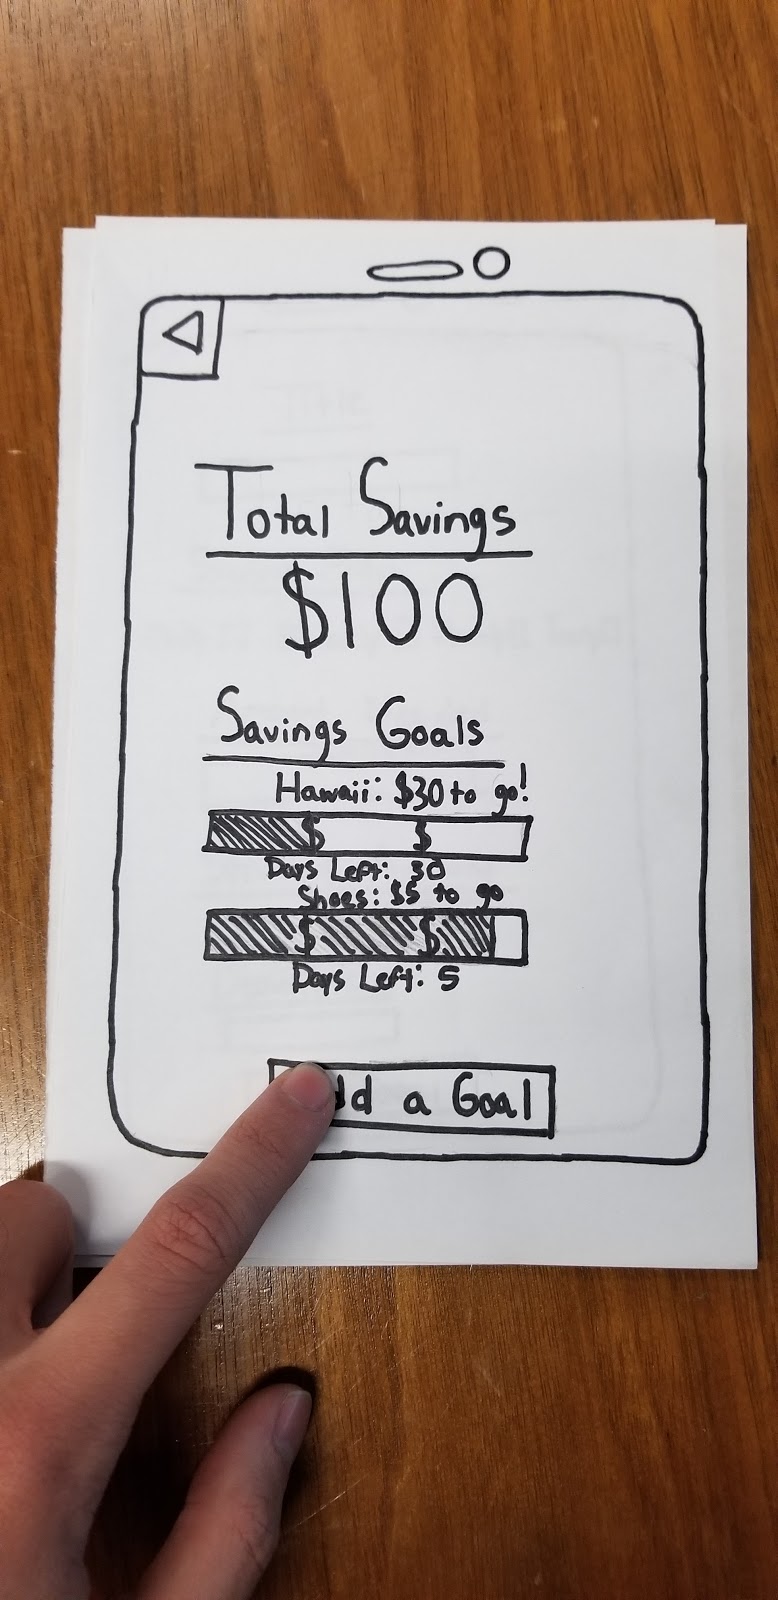 Total Savings
$100
Savings Goals
Hawaii: $30 to go!
$ $
Days Left: 30
Shoes: $5 to go
$ $
Days Left: 5
dd a Goal